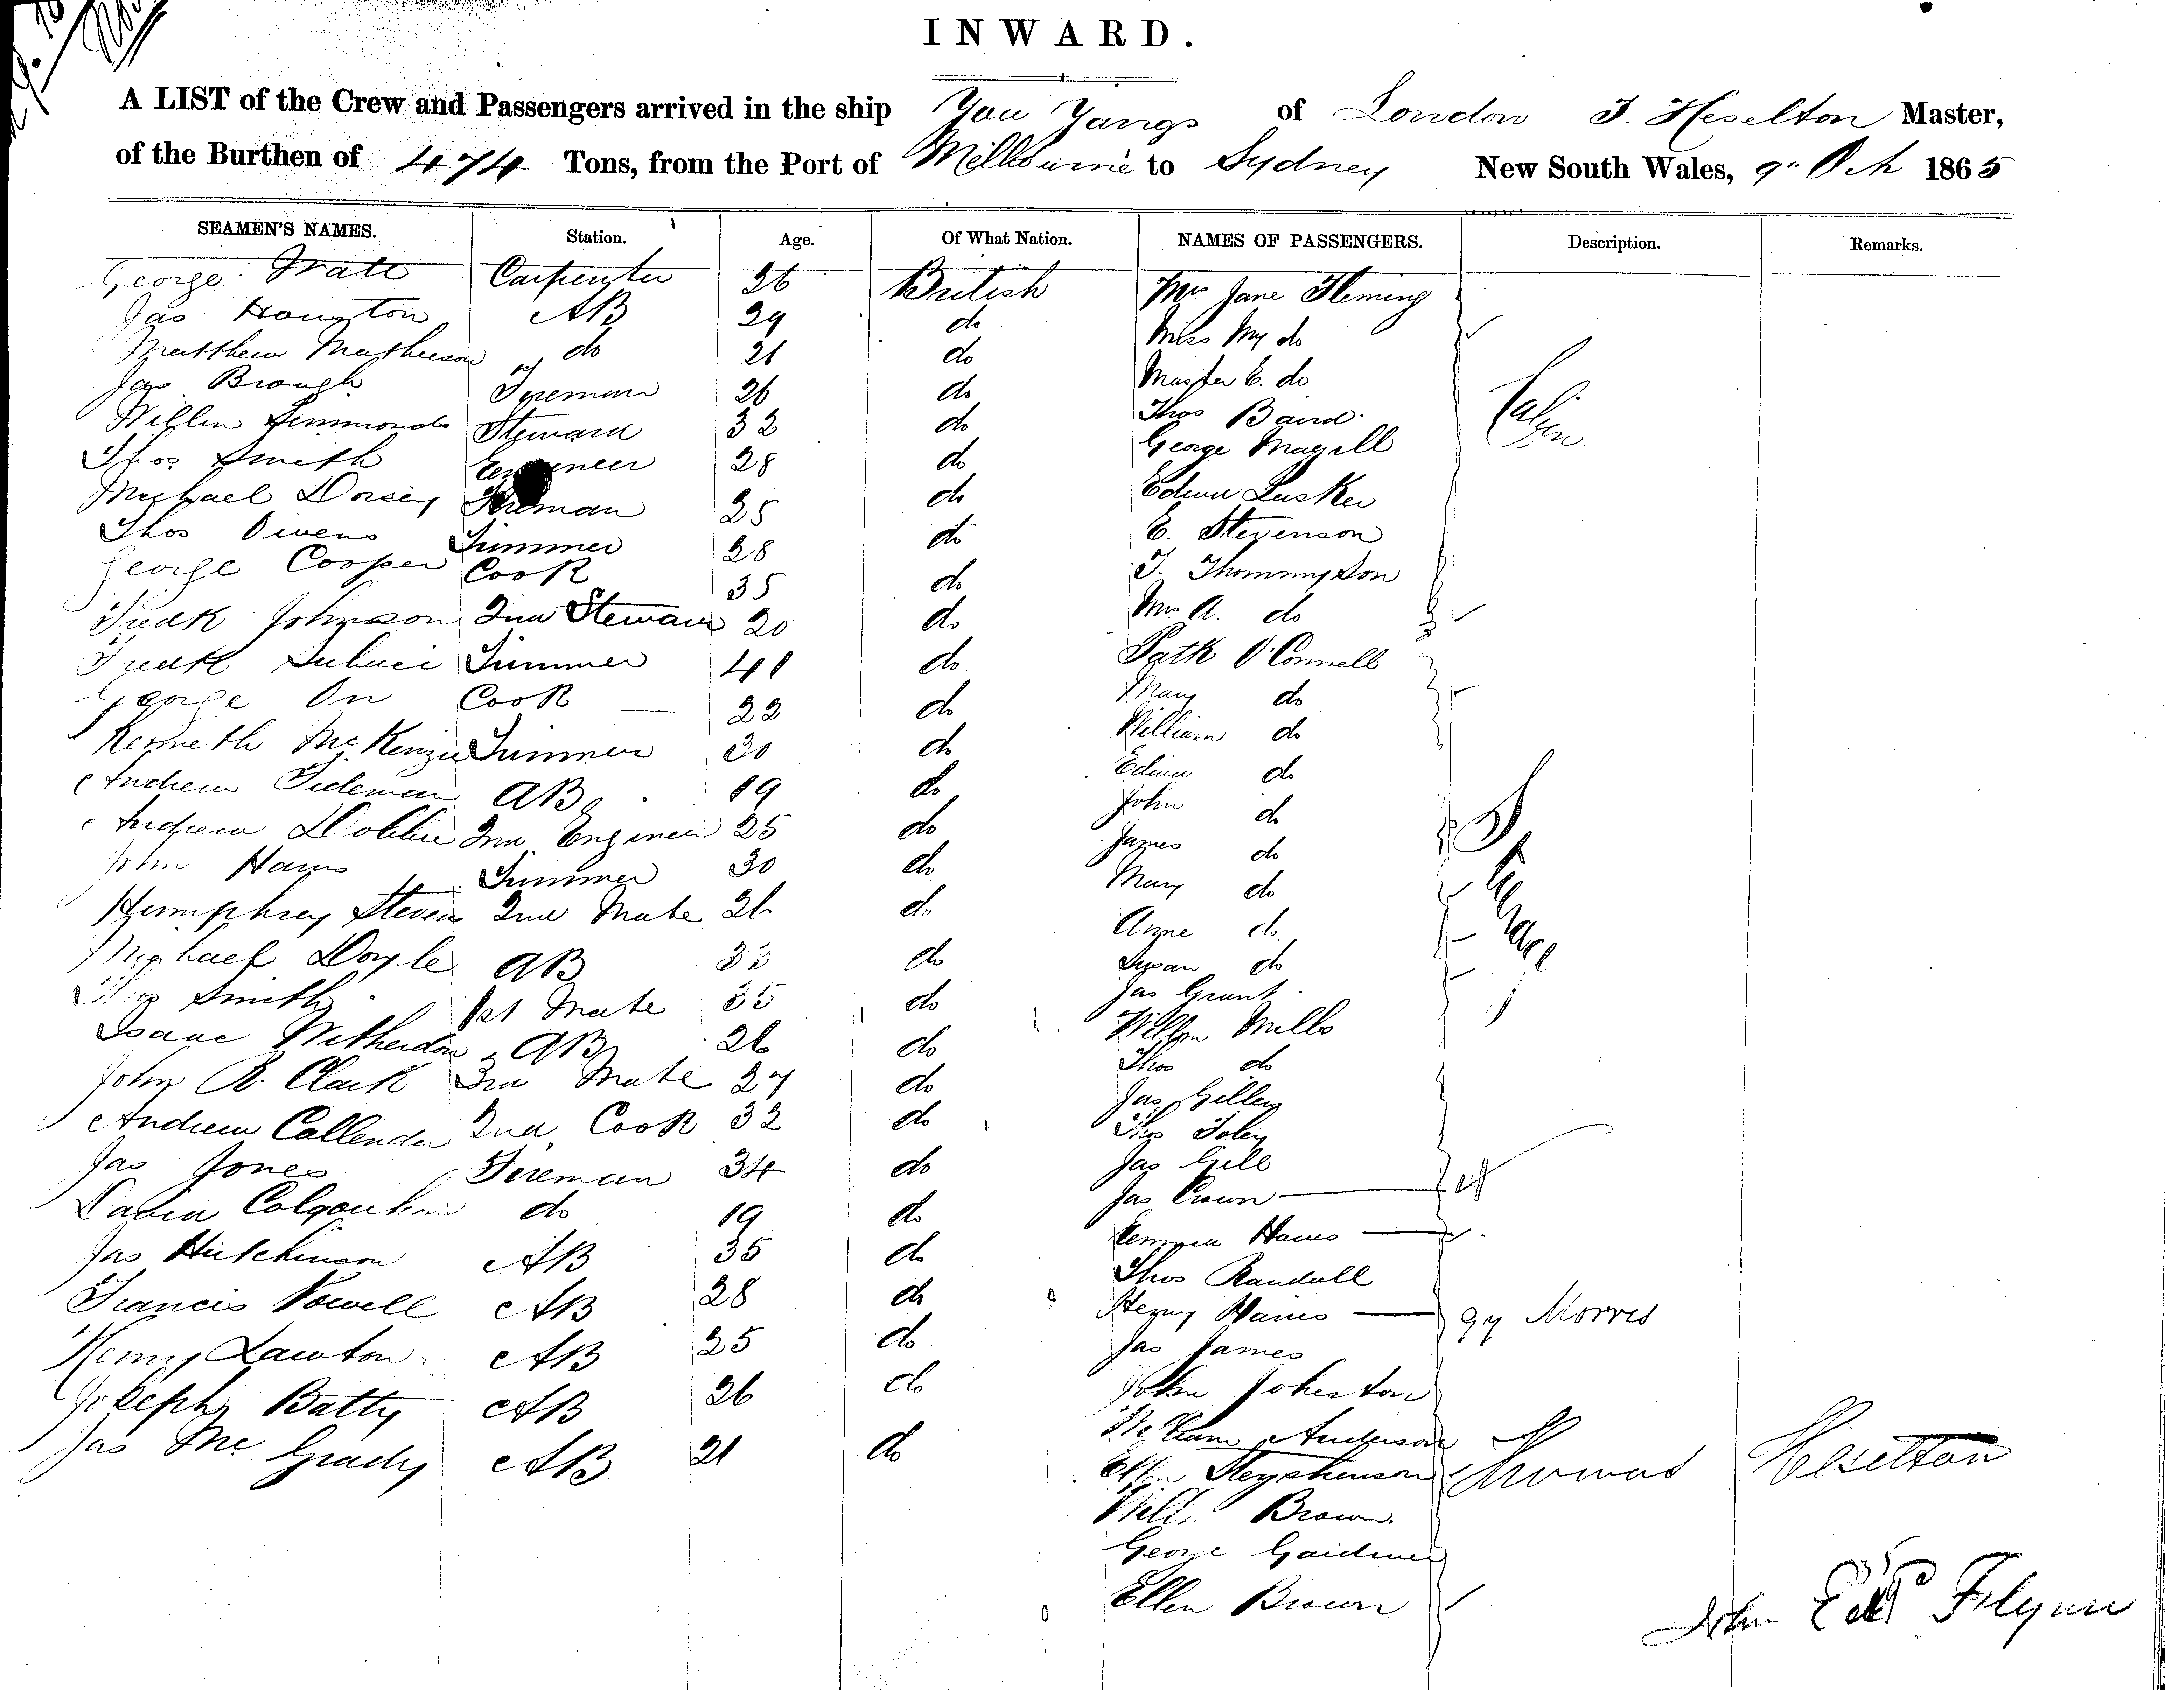 INWARD.
A LIST of the Crew and Passengers arrived in the ship You Yangs of London T. Heselton Master,
of the Burthen of 474 Tons, from the Port of Melbourne to Sydney New South Wales, 9" Oct 1865
SEAMEN'S NAMES. Station. Age. Of What Nation. NAMES OF PASSENGERS. Description. Remarks.
George Carpenter 26 British Mrs Jane Fleming
Jas Houston AB 29 do Miss My do
Matthew Matheson do 21 do Master E. do
Jas Brough Fireman 26 do Thos Baird
Willm Simmonds Steward 32 do George Magill
Thos Smith Engineer 28 do Lusker
Michael Dorsey Fireman 25 do E. Stevenson
Thos Owens Trimmer 28 do T. Thommpson
George Cooper Cook 35 do Mrs A. do
Fredk Johnson 2nd Steward 20 do Patk O'Connell
Fredk Trimmer 41 do Mary do
George Cook 22 do William do
Kenneth McKenzie Trimmer 30 do do
Andrew Tideman AB 19 do John do
Andrew Dobbie 2nd Engineer 25 do James do
John Trimmer 30 do Mary do
Humphrey Stevens 2nd Mate 26 do Anne do
Michael Doyle AB 33 do Susan do
Thos Smith 1st Mate 35 do Jas Grant
Isaac AB 26 do Willm Mills
John R. Clark 3rd Mate 27 do Thos do
Andrew Callender 2nd Cook 32 do Jas Gilley
Jas Jones Fireman 34 do Thos Foley
David Colqouhoun do 19 do Jas Gill
Jas Hutchinson AB 35 do Jas
Francis Powell AB 28 do
Henry Lawton AB 25 do Thos Randall
Joseph Batty AB 26 do Henry
Jas McGrady AB 21 do Jas James
gy Morris
John Johnston
William Anderson
Stephenson
Thomas Heselton
Willm Brown
George Gardiner
Ellen Brown
John Edwd Flynn